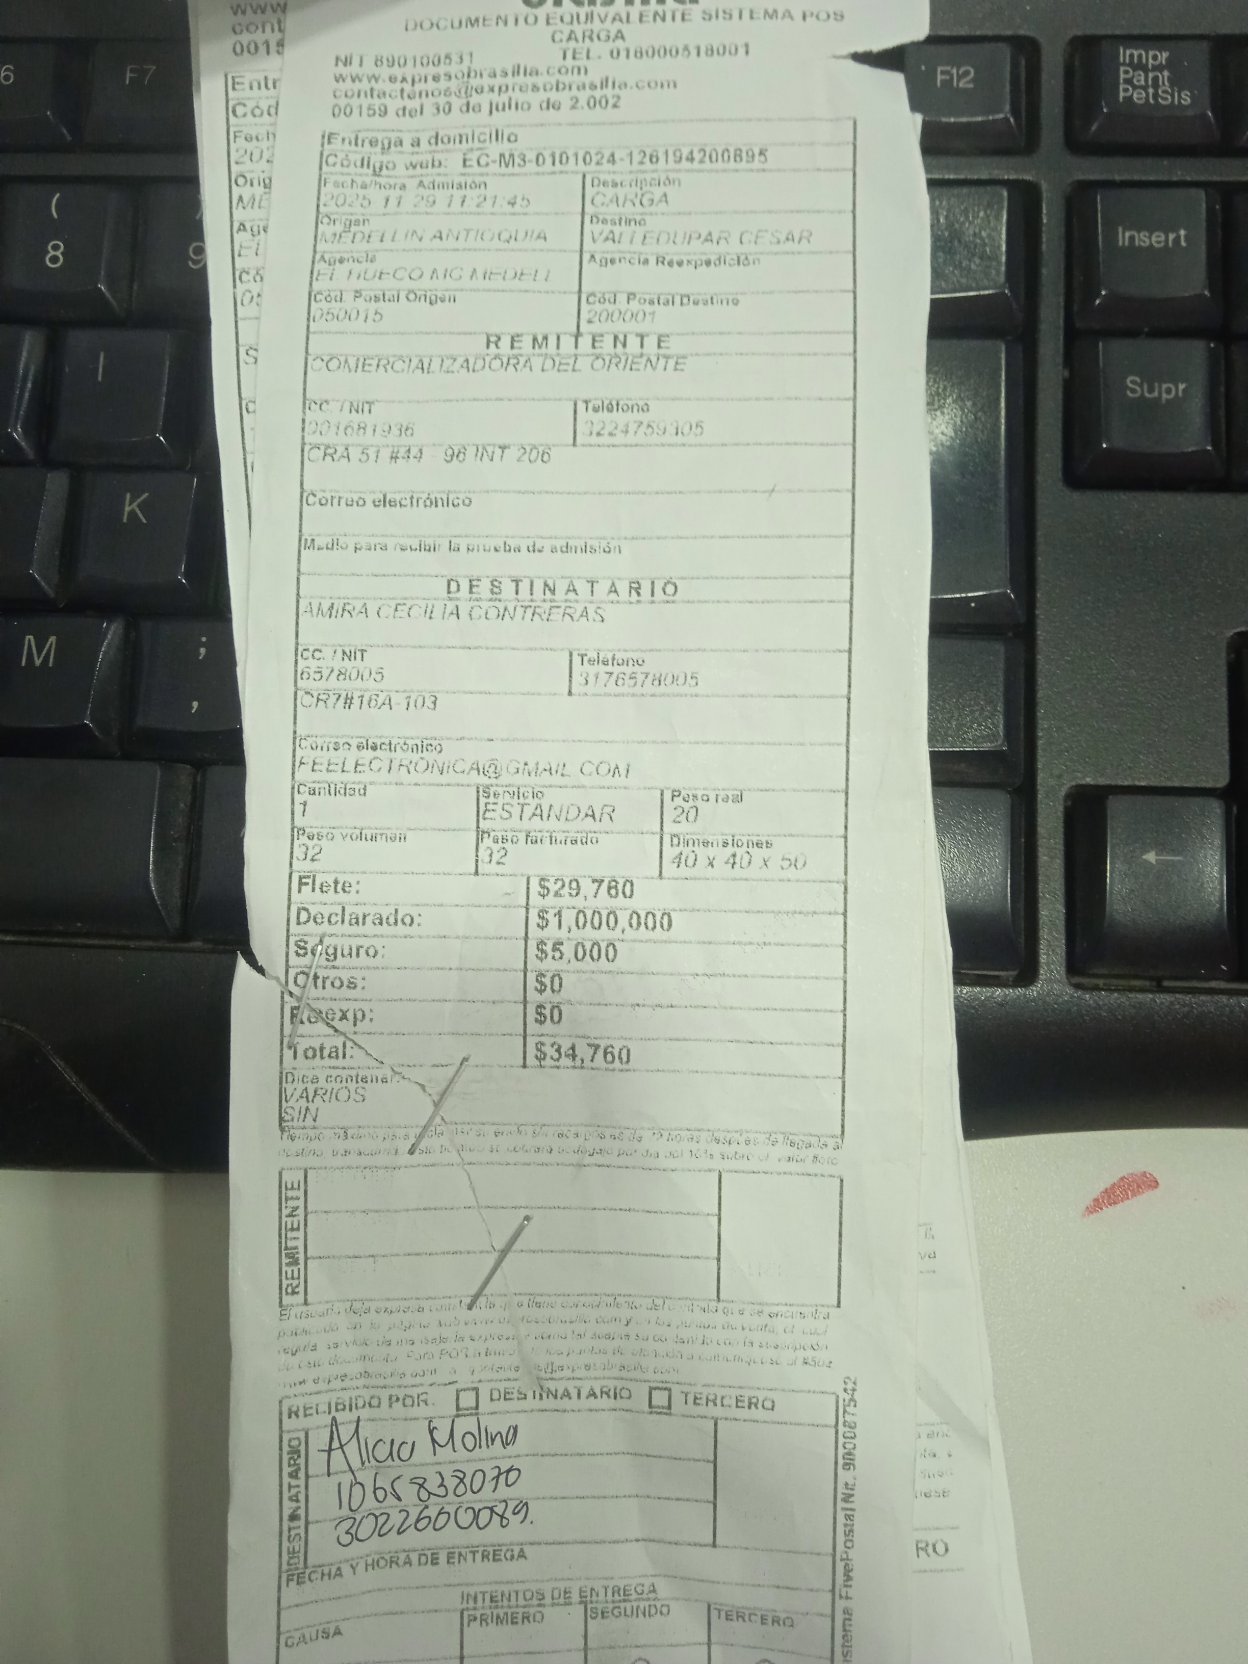 DOCUMENTO EQUIVALENTE SISTEMA POS
CARGA
NIT 890100531 TEL. 018000518001
www.expresobrasilia.com
contactenos@expresobrasilia.com
00159 del 30 de julio de 2.002
Entrega a domicilio
Código web: EC-M3-0101024-126194200895
Fecha/hora Admisión Descripción
2025 11 29 11:21:45 CARGA
Origen Destino
MEDELLIN ANTIOQUIA VALLEDUPAR CESAR
Agencia Agencia Reexpedición
EL HUECO MG MEDELL
Cód. Postal Origen Cód. Postal Destino
050015 200001
REMITENTE
COMERCIALIZADORA DEL ORIENTE
CC. / NIT Teléfono
901681936 3224759305
CRA 51 #44 - 96 INT 206
Correo electrónico
Medio para recibir la prueba de admisión
DESTINATARIO
AMIRA CECILIA CONTRERAS
CC. / NIT Teléfono
6578005 3176578005
CR7#16A-103
Correo electrónico
FEELECTRONICA@GMAIL.COM
Cantidad Servicio Peso real
1 ESTANDAR 20
Peso volumen Peso facturado Dimensiones
32 32 40 x 40 x 50
Flete: $29,760
Declarado: $1,000,000
Seguro: $5,000
Otros: $0
Reexp: $0
Total: $34,760
Dice contener:
VARIOS
SIN
REMITENTE
RECIBIDO POR: DESTINATARIO TERCERO
DESTINATARIO
Alicia Molina
1065838070
3022660089.
FECHA Y HORA DE ENTREGA
INTENTOS DE ENTREGA
CAUSA PRIMERO SEGUNDO TERCERO
Sistema FivePostal Nit. 900087542
F7
F12
Impr
Pant
PetSis
(
8
9
Insert
I
Supr
K
M
;
,
←
RO